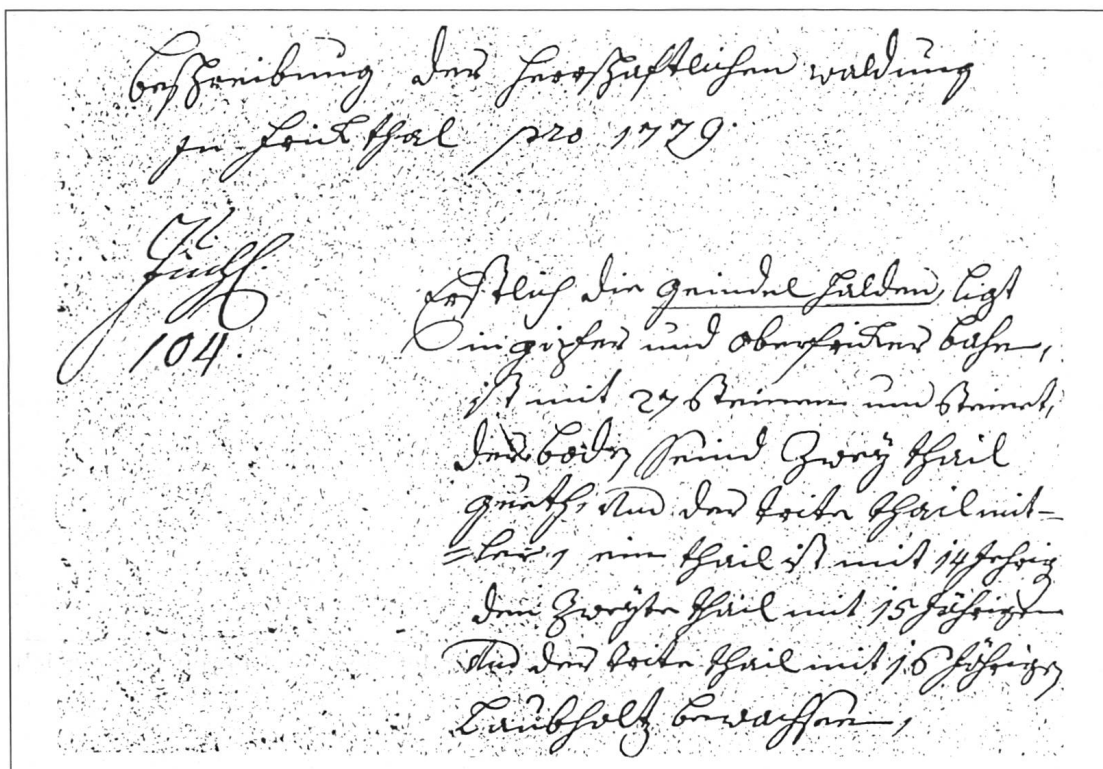 beschreibung der herrschaftlichen waldung
in frickthal pro 1779.
Juch.
104.
Erstlich die geindel halden, ligt
in gipfer und oberfricker bahn,
ist mit 27 steinen um steinet,
der boden seind Zwey thail
gueth, und der trite thail mit-
=ler, ein thail ist mit 14 Jehrig
dem Zweyte thail mit 15 Jährigen
und der trite thail mit 16 Jährigen
Laubholtz bewachsen,